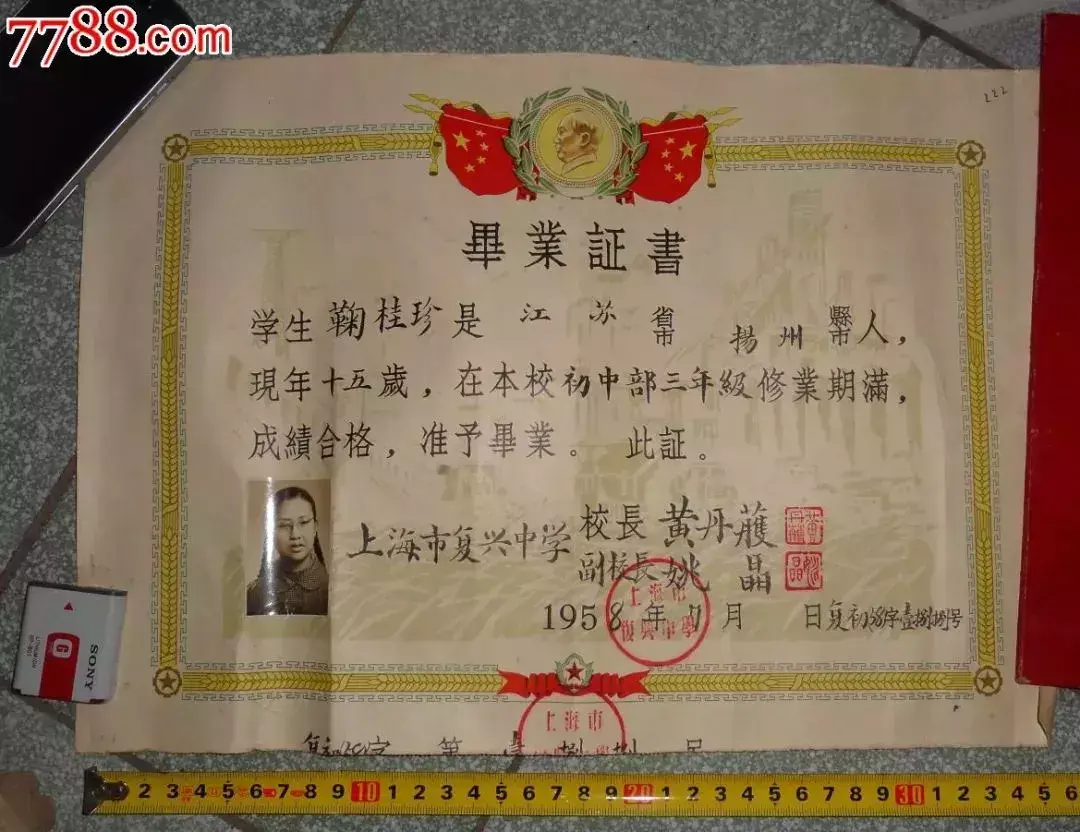 7788.com
222
畢業証書
学生鞠桂珍是江苏省市揚州縣市人，
現年十五歲，在本校初中部三年級修業期滿，
成績合格，准予畢業。此証。
上海市复兴中学
校長黄丹艧
副校長姚晶
1958年7月 日复初(58)字壹捌捌号
上海市
復興中學
上海市
第壹捌捌号
SONY
1 2 3 4 5 6 7 8 9 10 1 2 3 4 5 6 7 8 9 20 1 2 3 4 5 6 7 8 9 30 1 2 3 4 5 6